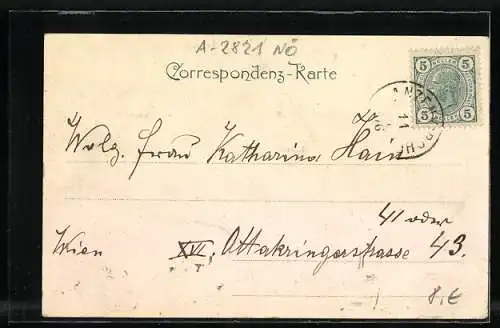 A-2821 NÖ
Correspondenz-Karte
5 5
5 5
Wolg. Frau Katharina Hain
41 oder
Wien XVI. Ottakringerstrasse 43.
8.€